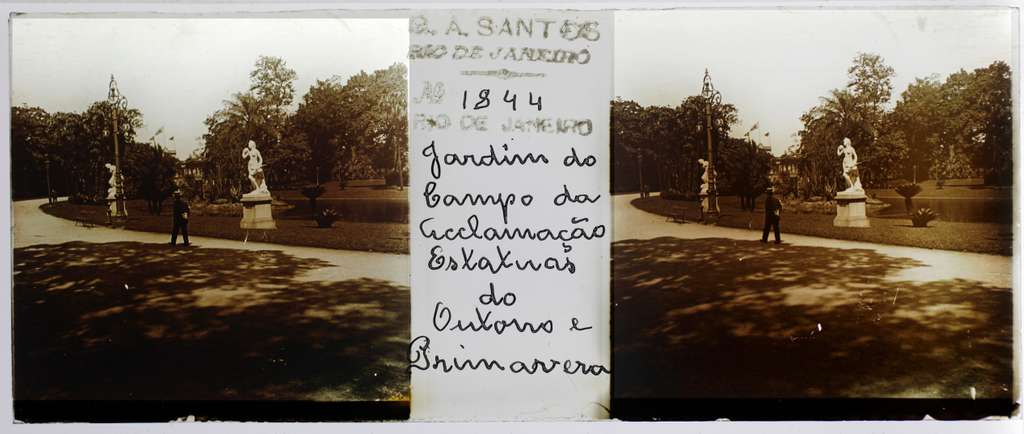 G. A. SANTOS
RIO DE JANEIRO
No 1844
RIO DE JANEIRO
Jardim do
Campo da
Acclamação
Estatuas
do
Outono e
Primavera